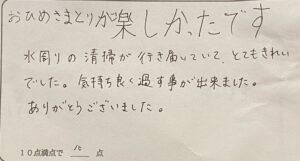 おひめさまとりが楽しかったです
水周りの清掃が行き届いていて、とてもきれい
でした。気持ち良く過す事が出来ました。
ありがとうございました。
10点満点で 点